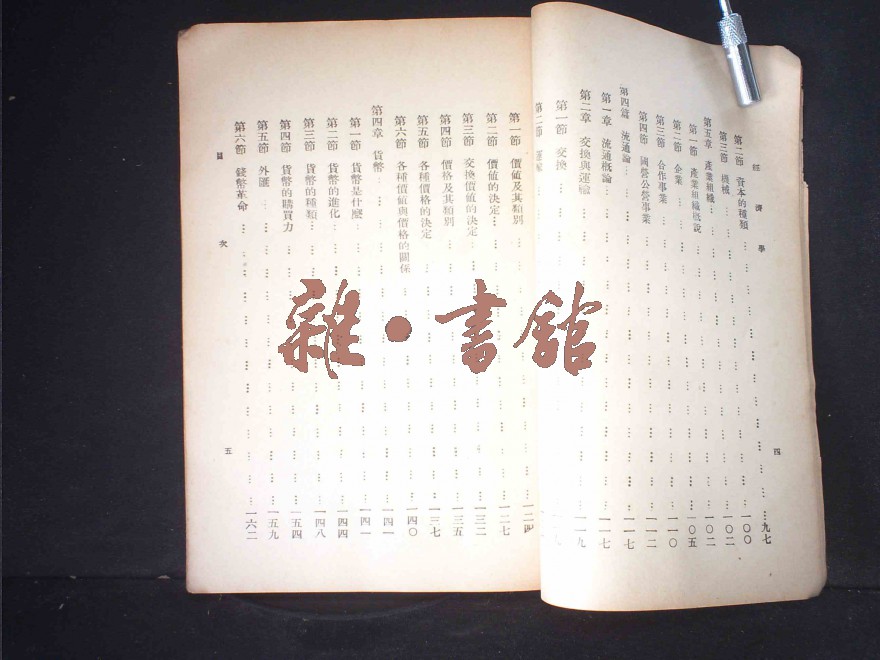 經濟學 四
第二節 資本的種類 … 九七
第三節 機械 … 一〇〇
第五章 產業組織 … 一〇二
第一節 產業組織概說 … 一〇二
第二節 企業 … 一〇五
第三節 合作事業 … 一一〇
第四節 國營公營事業 … 一一二
第四篇 流通論 … 一一七
第一章 流通概論 … 一一七
第二章 交換與運輸 … 一一九
第一節 交換 … 一一九
第二節 運輸
第一節 價值及其類別 … 一二四
第二節 價值的決定 … 一二七
第三節 交換價值的決定 … 一三二
第四節 價格及其類別 … 一三五
第五節 各種價格的決定 … 一三七
第六節 各種價值與價格的關係 … 一四〇
第四章 貨幣 … 一四一
第一節 貨幣是什麼 … 一四一
第二節 貨幣的進化 … 一四四
第三節 貨幣的種類 … 一四八
第四節 貨幣的購買力 … 一五四
第五節 外匯 … 一五九
第六節 錢幣革命 … 一六二
目次 五
雜·書館